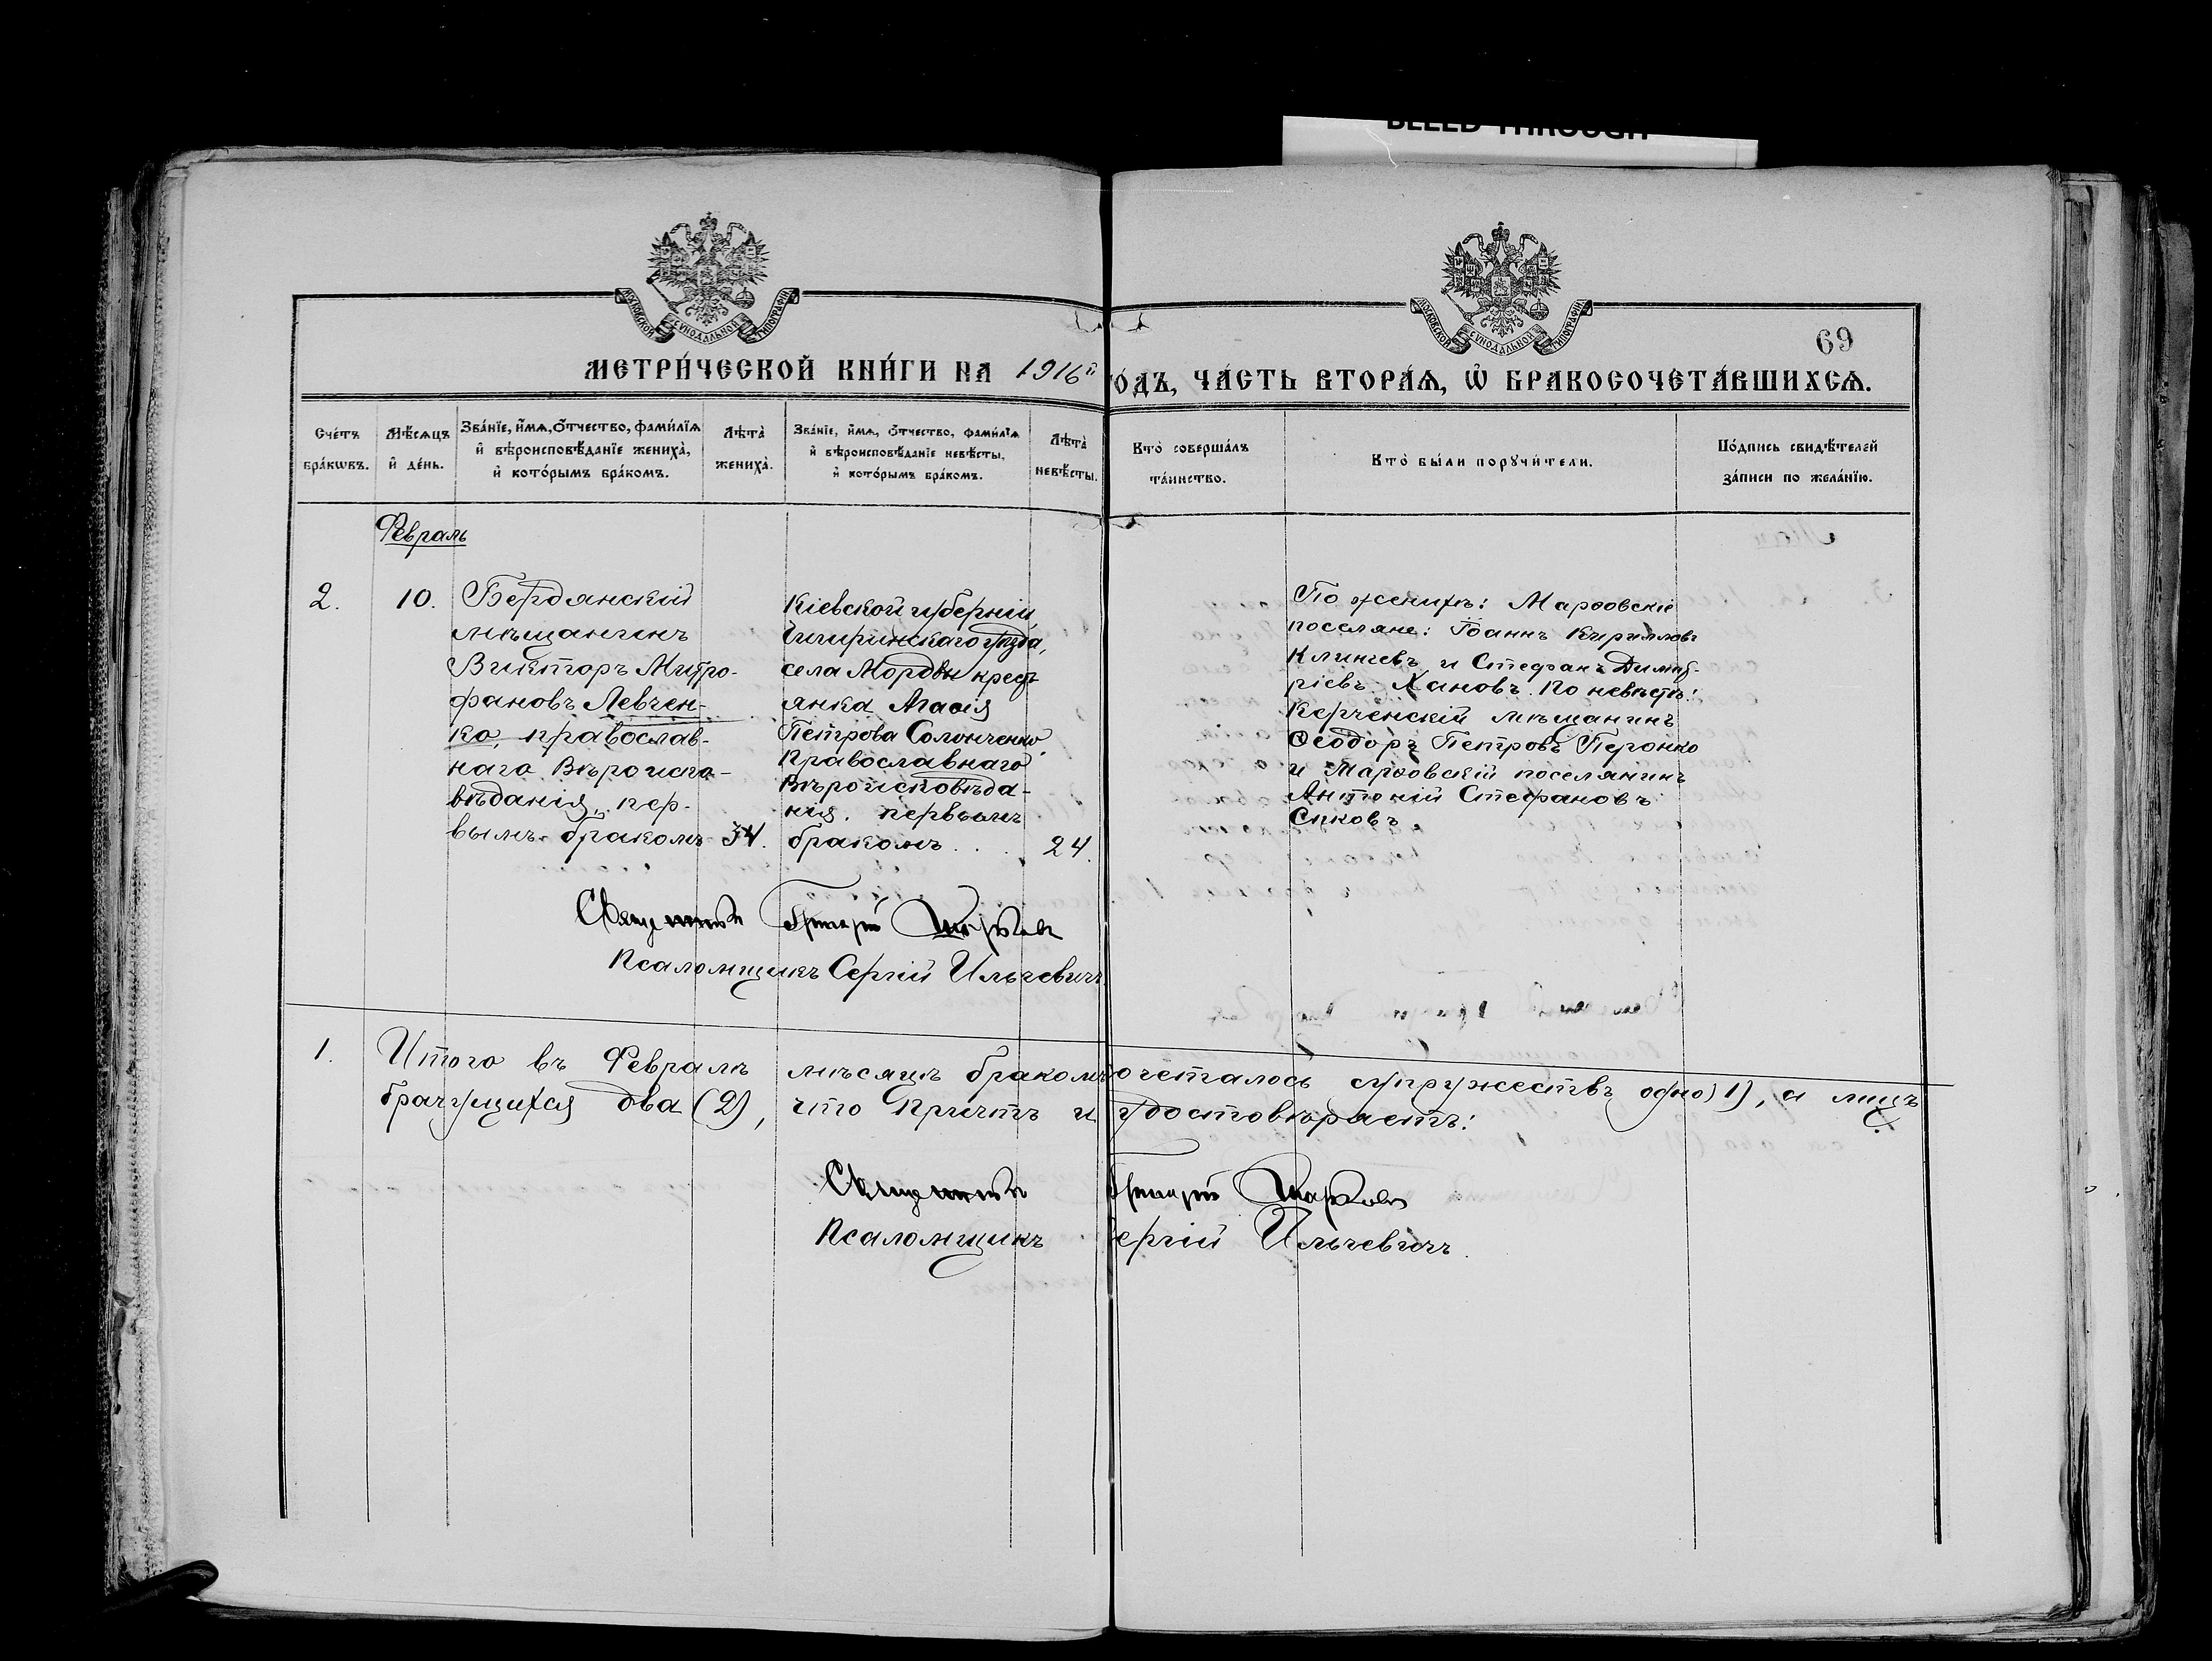 BLEED THROUGH
МОСКОВСКОЙ СѴНОДАЛЬНОЙ ТИПОГРАФІИ
МОСКОВСКОЙ СѴНОДАЛЬНОЙ ТИПОГРАФІИ
69
МЕТРИ́ЧЕСКОЙ КНИ́ГИ НА 1916й
ОДЪ, ЧА́СТЬ ВТОРА́Ѧ, Ѡ БРАКОСОЧЕТА́ВШИХСѦ.
Сче́тъ бра́кѡвъ.
Мѣ́сѧцъ и҆ де́нь.
Зва́нїе, и҆́мѧ, о҆́тчество, фами́лїѧ и҆ вѣроисповѣ́данїе жениха̀, и҆ кото́рымъ бра́комъ.
Лѣта̀ жениха̀.
Зва́нїе, и҆́мѧ, о҆́тчество, фами́лїѧ и҆ вѣроисповѣ́данїе невѣ́сты, и҆ кото́рымъ бра́комъ.
Лѣта̀ невѣ́сты.
Кто̀ соверша́лъ та́инство.
Кто̀ бы́ли порꙋчи́тели.
По́дпись свидѣ́телей за́писи по жела́нїю.
Февраль
2.
10.
Бердянскій
мѣщанинъ
Викторъ Митро-
фановъ Левчен-
ко, православ-
наго вѣроиспо-
вѣданія, пер-
вымъ бракомъ
34.
Кіевской губерніи,
Чигиринскаго уѣзда,
села Мордвы крест
янка Агаѳія
Петрова Солонченко,
Православнаго
Вѣроисповѣда-
нія. первымъ
бракомъ
24.
По женихѣ: Марѳовскіе
поселяне: Іоаннъ Кирилловъ
Клинчевъ и Стефанъ Димит-
ріевъ Хановъ. По невѣстѣ:
Керченскій мѣщанинъ
Ѳеодоръ Петровъ Перонко
и Марѳовскій поселянинъ
Антоній Стефановъ
Священникъ Григорій
Псаломщикъ Сергій Ильчевичъ
1.
Итого въ Февралѣ мѣсяцѣ бракомъ очеталось супружествъ одно 1), а лицъ
брачущихся два (2), что Причтъ и удостовѣряетъ:
Священникъ Григорій
Псаломщикъ ергій Ильчевичъ.